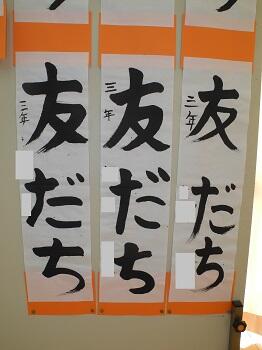 友だち
三年
友だち
三年
友だち
三年